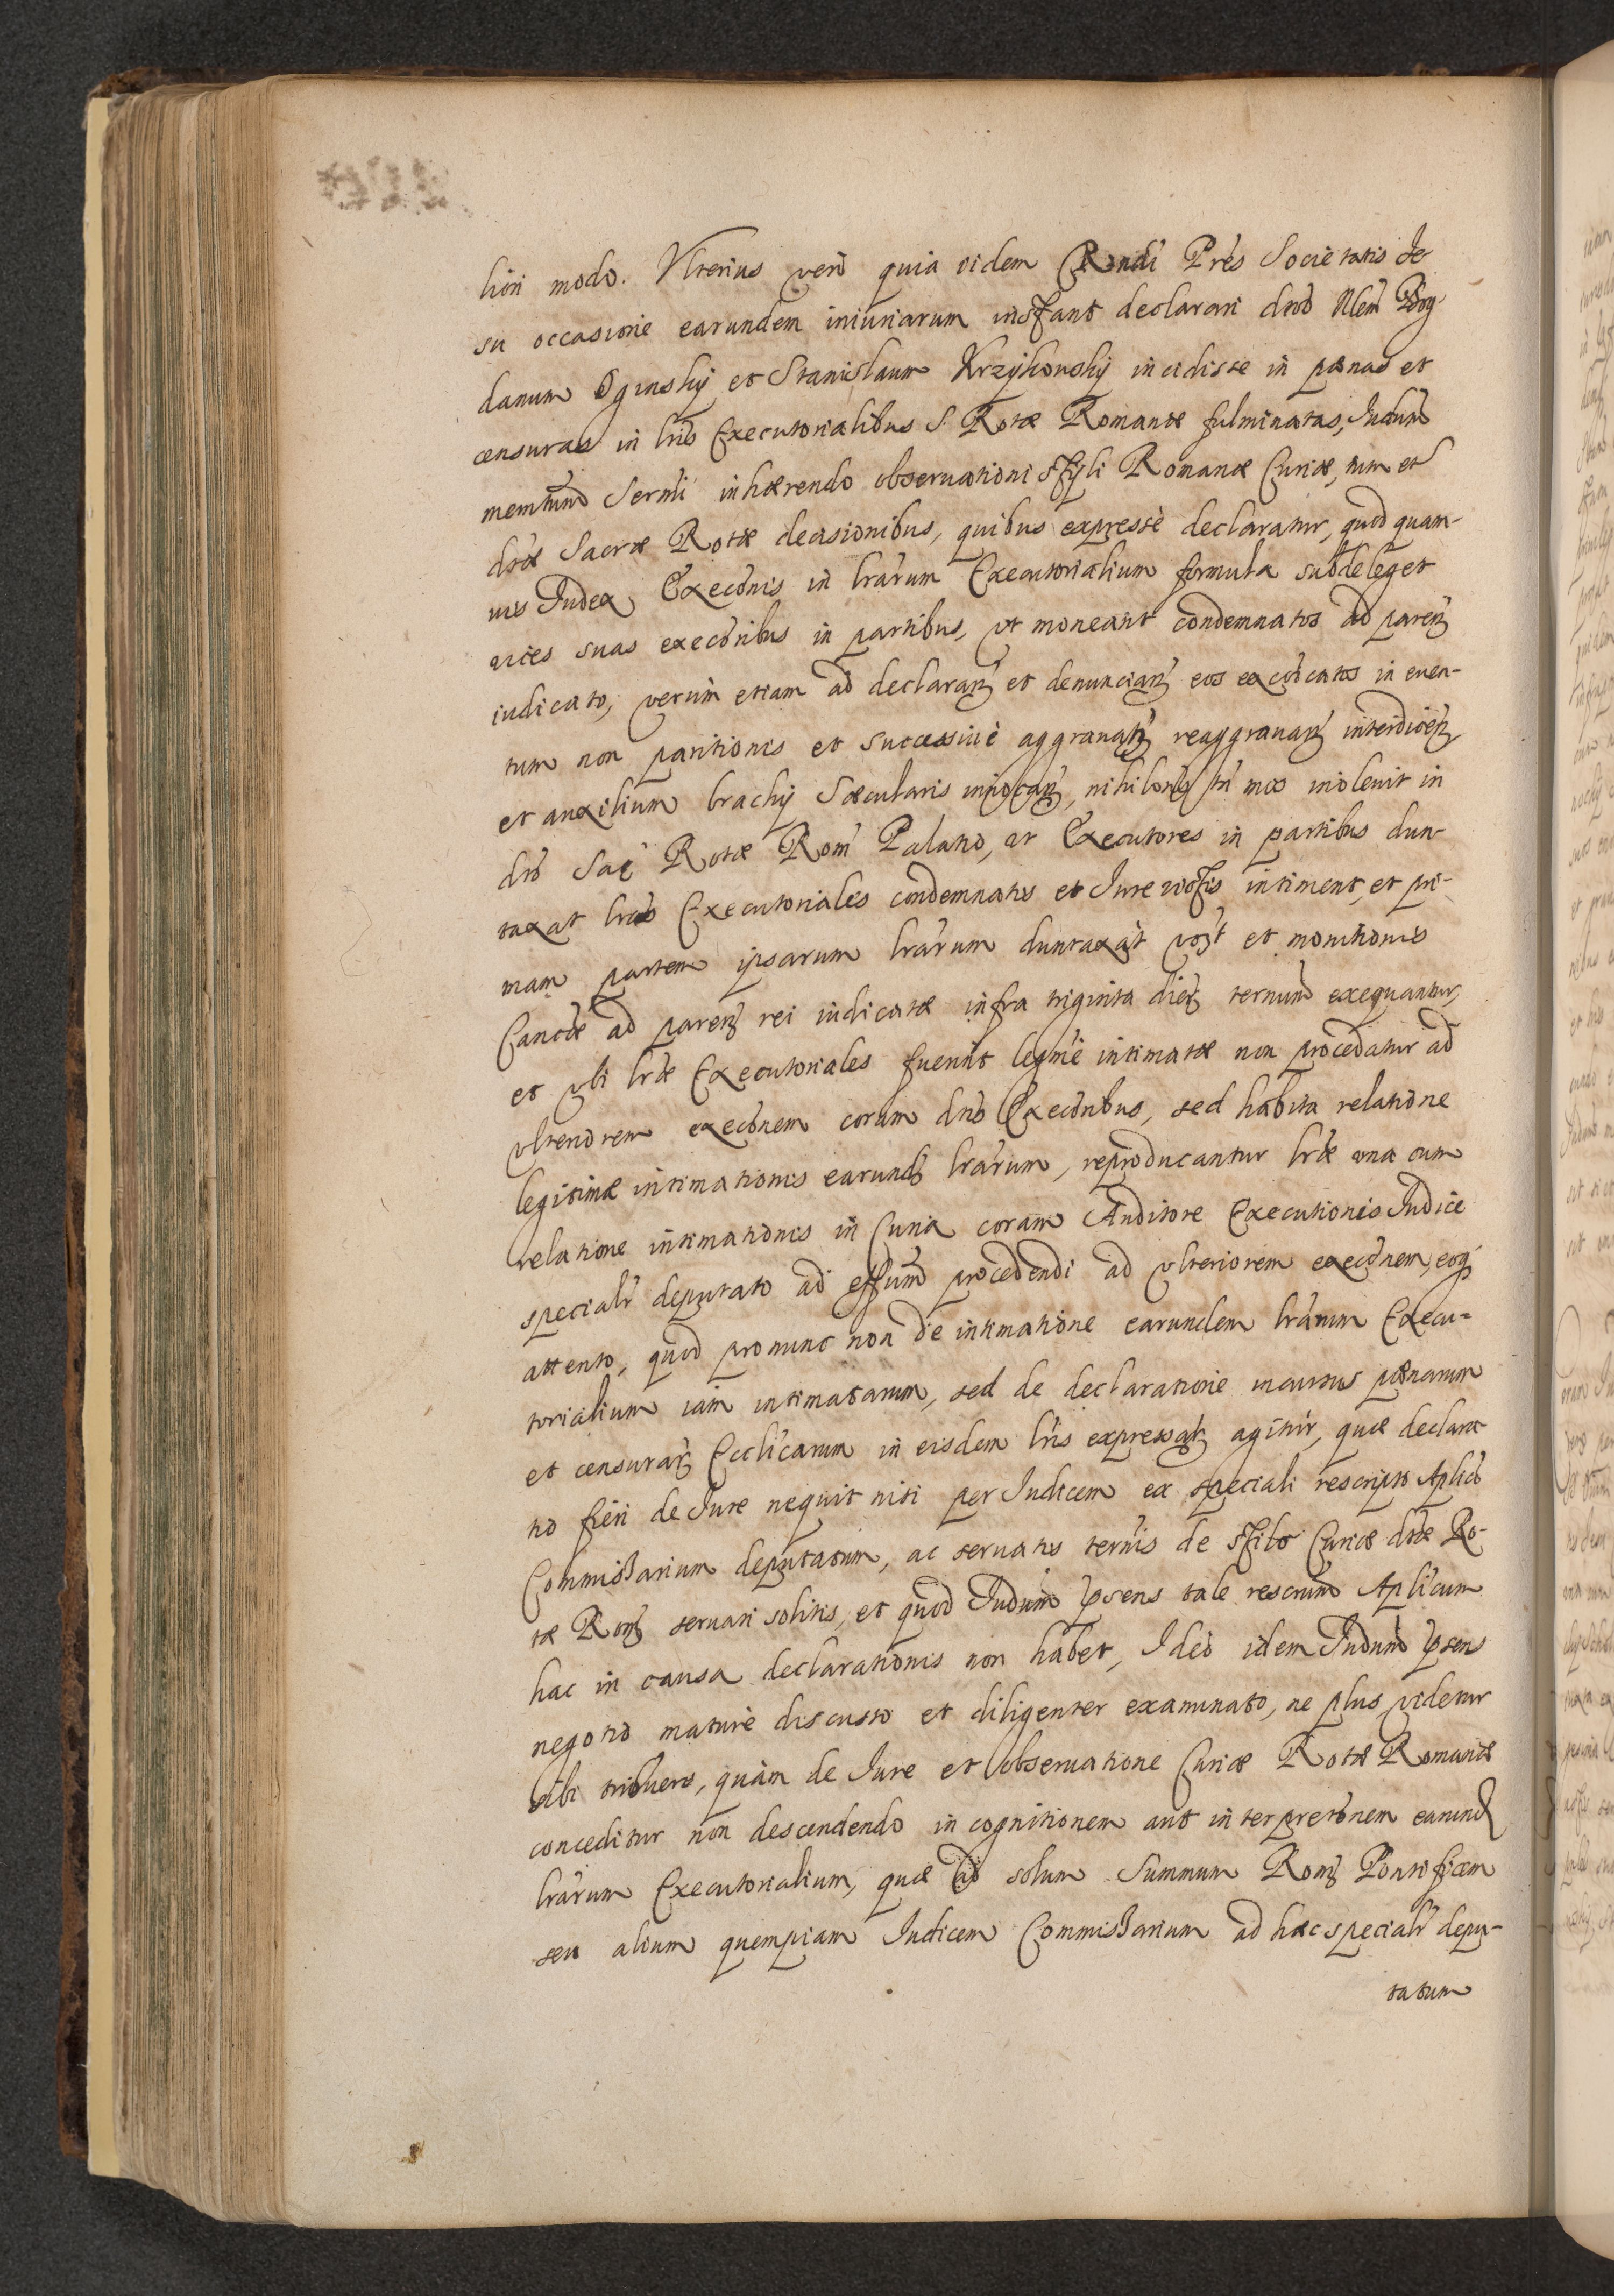 liori modo. Vlterius verò quia iidem Rndi Pres Societatis Je-
su occasione earundem iniuriarum instant declarari dnos Illem Bog-
danum Oginskij et Stanislaum Krzykowskij incidisse in pœnas et
censuras in lris Executorialibus S. Rotæ Romanæ fulminatas, Judium
memtum Sermi inhærendo obseruationi styli Romanæ Curiæ, tum et
dtæ Sacræ Rotæ decisionibus, quibus expressè declaratur, quod quam-
uis Judex Execonis in lrarum Executorialium formula subdeleget
vices suas execonibus in partibus, vt moneant condemnatos ad paren
iudicato, verùm etiam ad declaran et denuncian eos excoicatos in euen-
tum non paritionis et successiuè aggrauan reaggrauan interdicen
et auxilium brachij Sæcularis inuocan, nihilons tn mos inoleuit in
dto Sac Rotæ Rom Palatio, vt Executores in partibus dun-
taxat lras Executoriales condemnatis et Jure victis intiment, et pri-
mam partem ipsarum lrarum duntaxat vost et monitionis
Canctæ ad paren rei iudicatæ infra triginta dier ternum exequantur,
et vbi lræ Executoriales fuerint legme intimatæ non procedatur ad
vlteriorem execonem coram dnis Execonibus, sed habita relatione
legitimæ intimationis earund lrarum, reproducantur lræ vna cum
relatione intimationis in Curia coram Auditore Executionis Judice
specialr deputato ad effum procedendi ad vlteriorem execonem, eoq
attento, quod pro nunc non de intimatione earundem lrarum Execu-
torialium iam intimatarum, sed de declaratione incursus pœnarum
et censurar Ecclicarum in eisdem lris expressar agitur, quæ declara-
tio fieri de Jure nequit nisi per Judicem ex speciali rescripto Aplico
Commissarium deputatum, ac seruatis termis de stilo Curiæ dtæ Ro-
tæ Rom seruari solitis, et quod Judium psens tale rescrium Aplicum
hac in causa declarationis non habet, Ideò idem Judium psens
negotio maturè discusso et diligenter examinato, ne plus videtur
sibi tribuere, quàm de Jure et obseruatione Curiæ Rotæ Romanæ
conceditur non descendendo in cognitionem aut interpretonem earund
lrarum Executorialium, quæ ad solum Summum Rom Pontificem
seu alium quempiam Judicem Commissarium ad hæc specialr depu-
tatum